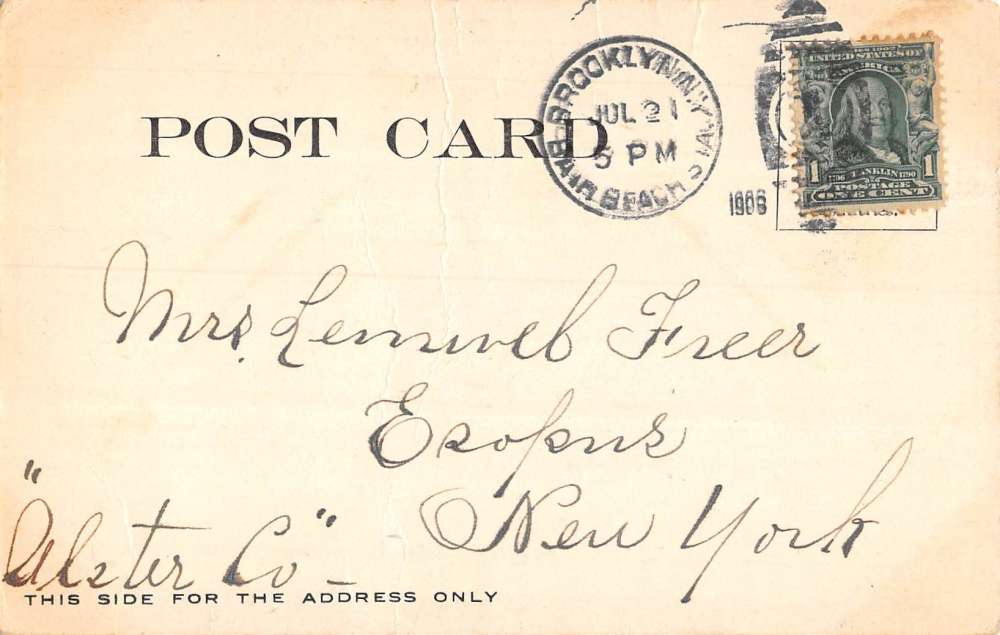 BROOKLYN, N.Y.
JUL 21
5 PM
BATH BEACH STA.
1906
SERIES 1902
UNITED STATES OF
AMERICA
1706 FRANKLIN 1790
1 POSTAGE 1
ONE CENT
POST CARD
Mrs. Lemuel Freer
Esopus
New York
"Ulster Co"
THIS SIDE FOR THE ADDRESS ONLY